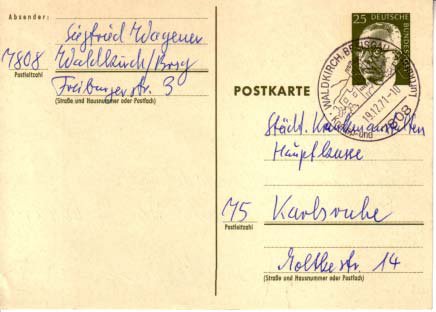 Absender:
Siegfried Wagener
7808 Waldkirch/Brsg
Postleitzahl
Freiburgerstr. 3
(Straße und Hausnummer oder Postfach)
25
DEUTSCHE BUNDESPOST
WALDKIRCH, BREISGAU
19.12.71-10
7808
POSTKARTE
Städt. Krankenanstalten
Hauptkasse
75 Karlsruhe
Postleitzahl
Moltkestr. 14
(Straße und Hausnummer oder Postfach)